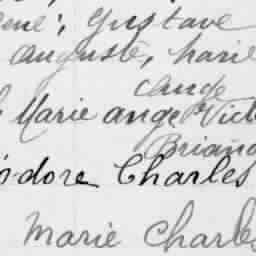 Gustave
Auguste, Marie
Cange
Marie ange Vict
Briand
odore Charles
Marie Charles